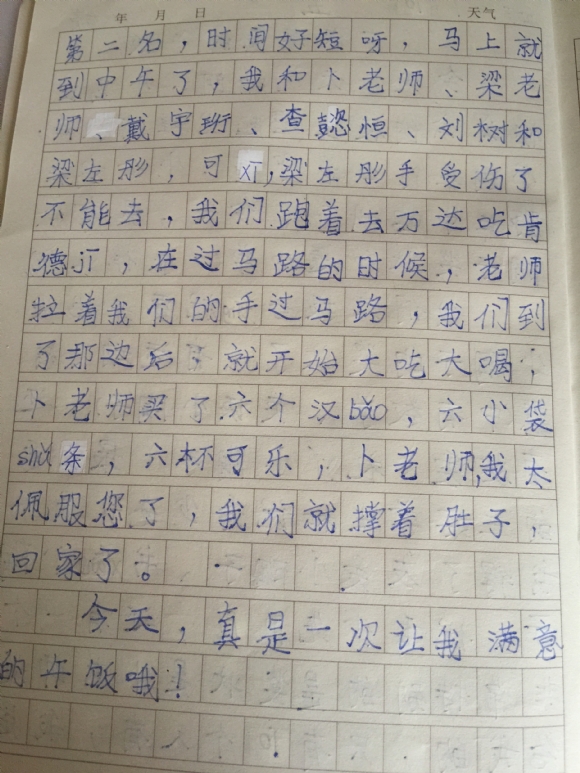 年 月 日 天气
第二名，时间好短呀，马上就
到中午了，我和卜老师、梁老
师、戴宇珩、查懿恒、刘树和
梁左彤，可xī，梁左彤手受伤了
不能去，我们跑着去万达吃肯
德jī，在过马路的时候，老师
拉着我们的手过马路，我们到
了那边后，就开始大吃大喝，
卜老师买了六个汉bǎo，六小袋
shǔ条，六杯可乐，卜老师，我太
佩服您了，我们就撑着肚子，
回家了。
今天，真是一次让我满意
的午饭哦！